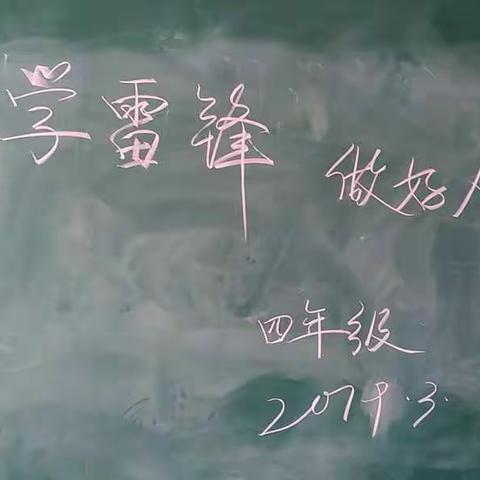 学雷锋 做好人
四年级
2019.3.